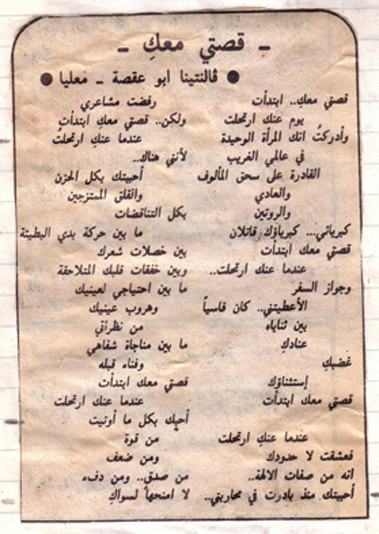 ـ قصتي معكِ ـ
● ڤالنتينا ابو عقصة ـ معليا ●
قصتي معكِ.. ابتدأت
يوم عنك ارتحلت
وأدركتُ انك المرأة الوحيدة
في عالمي الغريب
القادرة على سحق المألوف
والعادي
والروتين
كبريائي... كبرياؤك قاتلان
قصتي معك ابتدأت
عندما عنك ارتحلت..
وجواز السفر
الأعطيتني.. كان قاسياً
بين ثناياه
عنادكِ
غضبكِ
إستثناؤكِ
قصتي معك ابتدأت
عندما عنكِ ارتحلت
فعشقت لا حدودك
انه من صفات الالهة..
أحببتك منذ بادرت في محاربتي..
رفضت مشاعري
ولكن.. قصتي معكِ ابتدأت
عندما عنكِ ارتحلتُ
لأنني هناك..
أحببتك بكل الحزن
والقلق الممتزجين
بكل التناقضات
ما بين حركة يدي البطيئة
بين خصلات شعرك
وبين خفقات قلبك المتلاحقة
ما بين احتياجي لعينيك
وهروب عينيك
من نظراتي
ما بين مناجاة شفاهي
وفناء قبله
قصتي معك ابتدأت
عندما عنك ارتحلت
أحبك بكل ما أوتيت
من قوة
ومن ضعف
من صدق.. ومن دفء
لا امنحها لسواكِ